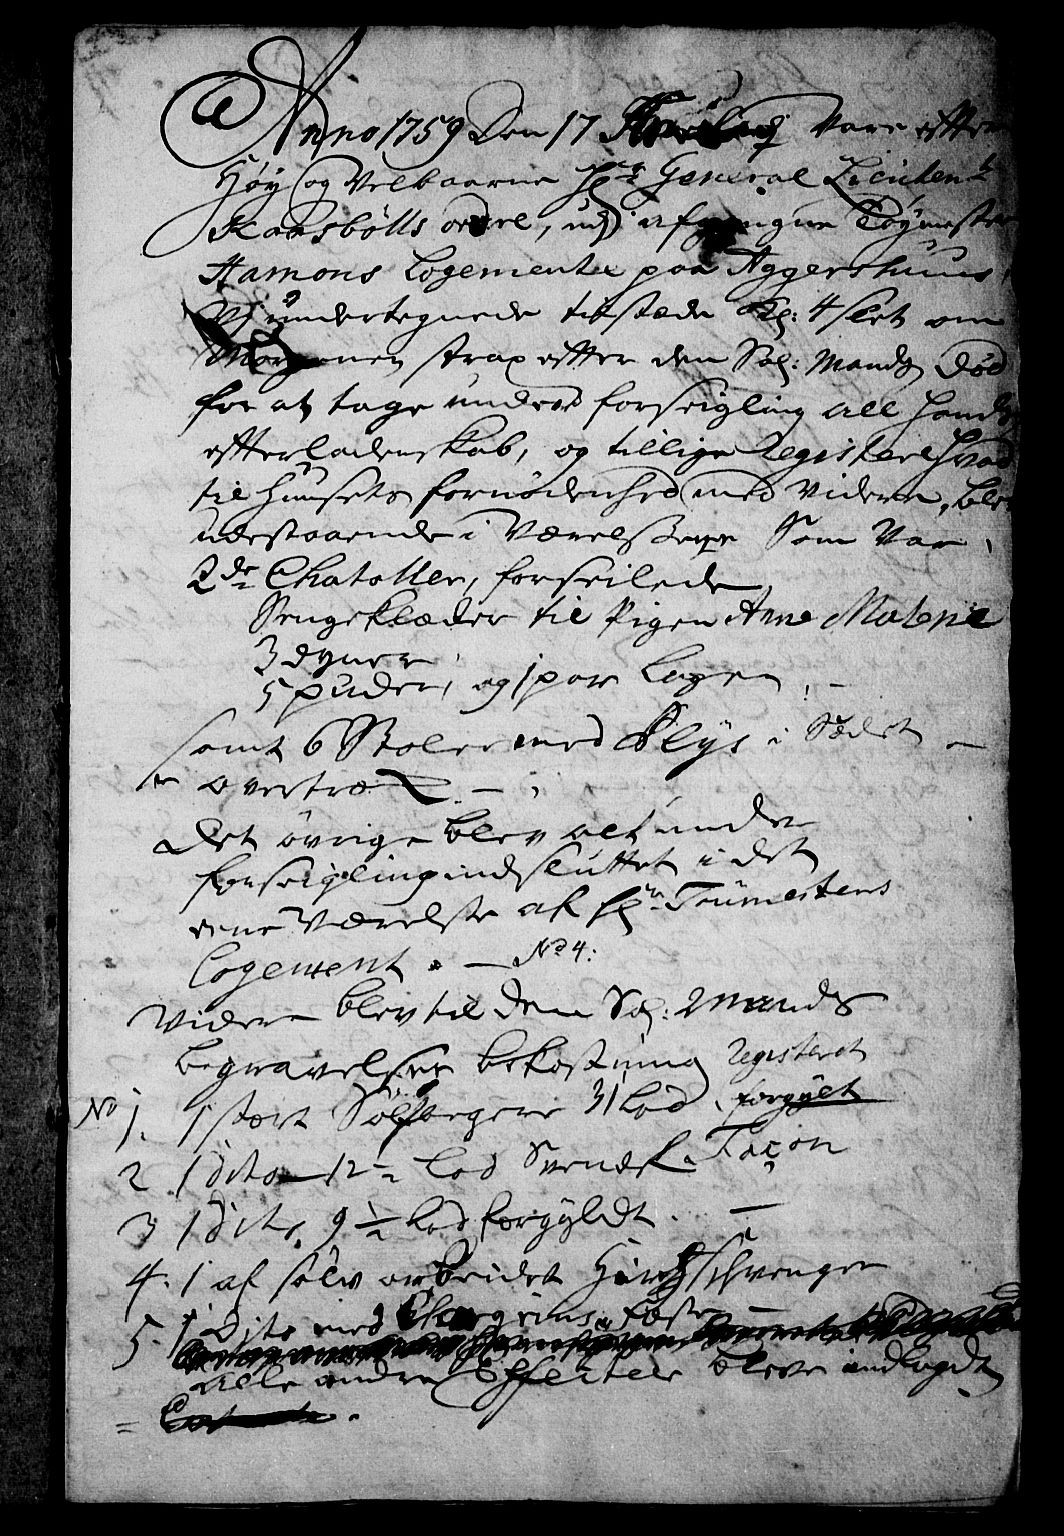 Anno 1759 den 17 Vare efter
Høy og Velbaarne Hr General Lieutent
Kaasbølls ordre, udj afgangne Tøymester
Hamons Logemente paa Aggershuus,
Vj undertegnede tilstæde Kl: 4 slet om
Morgenen strax efter den Sal: Mands Død
for at tage under forseigling all hands
efterladenskab, og tillige Registere hvad
til Huusets fornødenhed med videre, blev
udestaaende i Værelserne Som Var,
2de Chatoller, forseilede
Sengeklæder til Pigen Anne Malene
3 dyner
5 puder, og 1 par Lagen, -
samt 6 Stoler med Plys i Sædet -
overtræ
det øvrige blev alt under
forseigling indsluttet i det
eene Værelse af Hr Töümesters
Logement. - No 4:
Videre blev til den Sal: Mands
begravelses bekostning Registeret
No 1. 1 stort Sølfbegere 31 Lod, forgylt
2 1 dito 12 - Lod Svensk Façon
3 1 Dito, 9 1/2 Lod forgyldt. -
4. 1 af sølv arbeidet Hirschfvenger
5. 1 Dito med Chagrins fæste -
alle andre Effecter bleve indlagdt